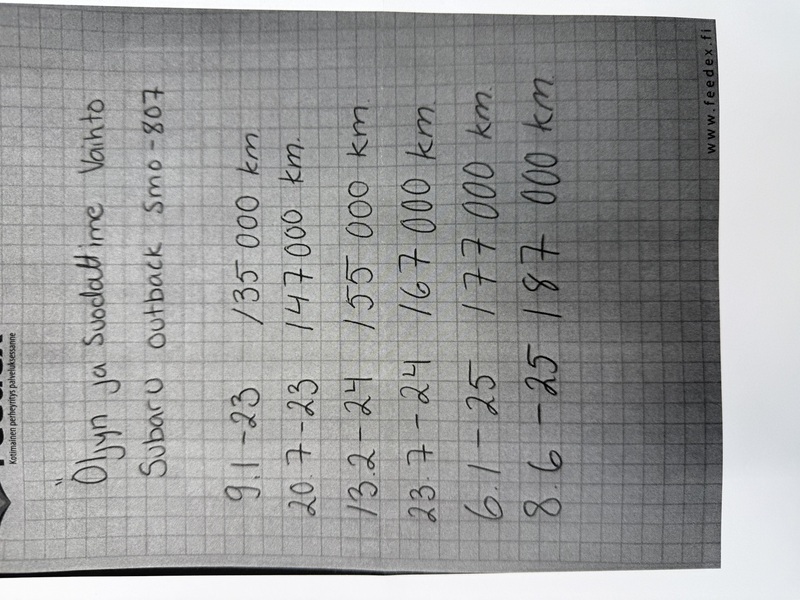 Kotimainen perheyritys palveluksessanne
Öljyn ja Suodattime Vaihto
Subaru outback smo-807
9.1-23 135 000 km
20.7-23 147 000 km.
13.2-24 155 000 km.
23.7-24 167 000 km.
6.1-25 177 000 km.
8.6-25 187 000 km.
www.feedex.fi